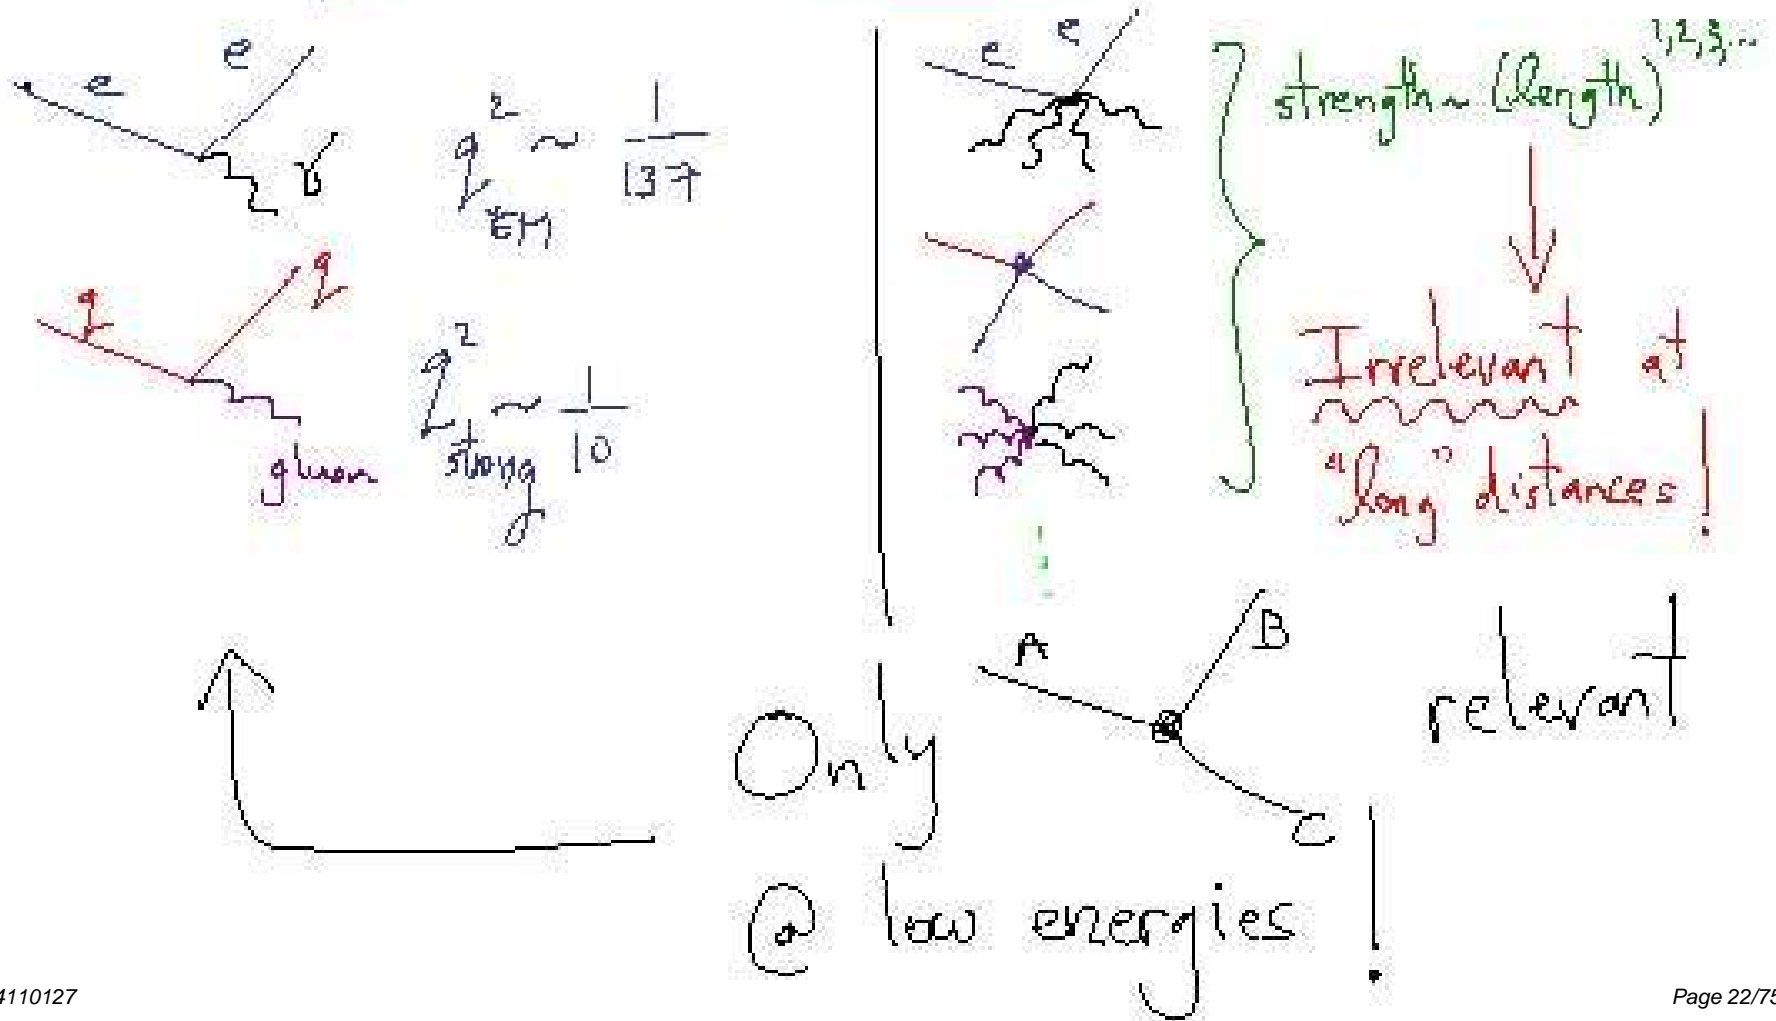 e e γ
g² EM ~ 1/137
q q gluon
g² strong ~ 1/10
e e
strength ~ (length)^1,2,3,...
Irrelevant at
"long" distances!
A B C
relevant
Only
@ low energies!
4110127
Page 22/75